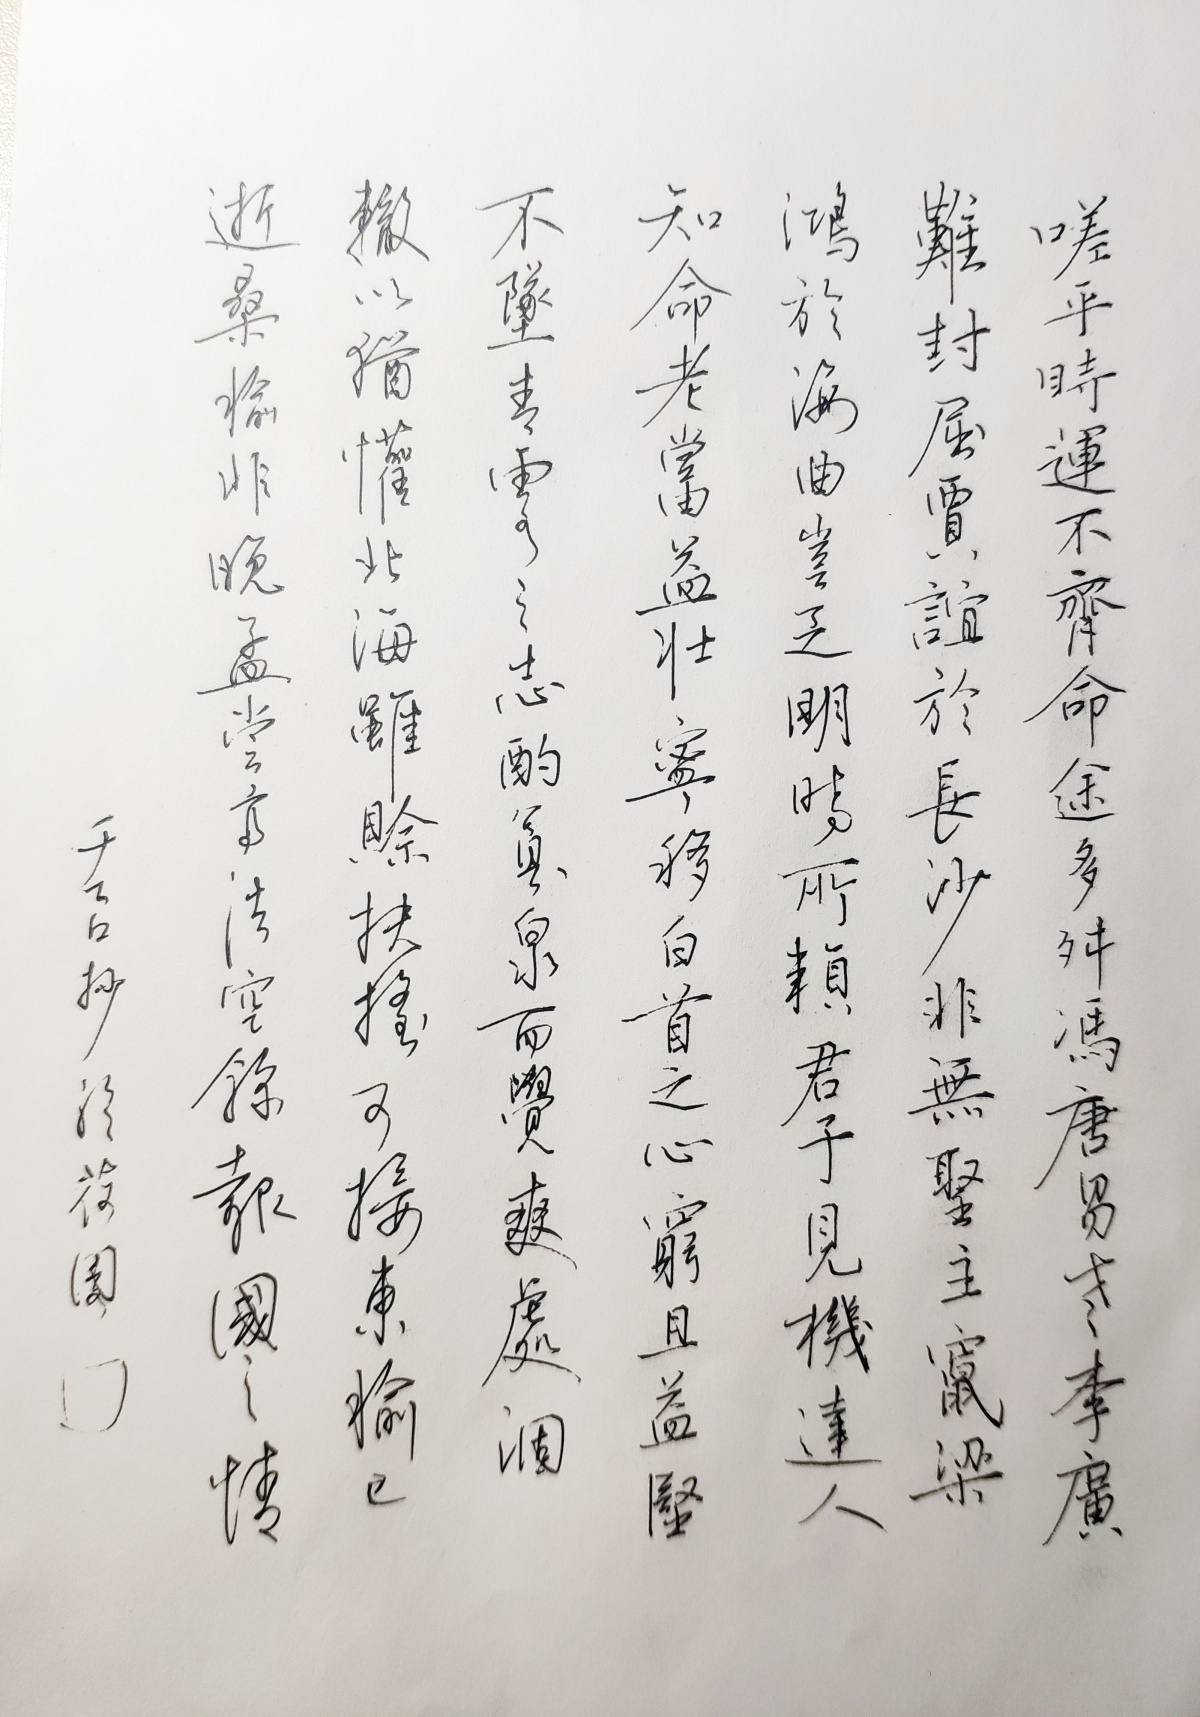 嗟乎時運不齊命途多舛馮唐易老李廣
難封屈賈誼於長沙非無聖主竄梁
鴻於海曲豈乏明時所賴君子見機達人
知命老當益壯寧移白首之心窮且益堅
不墜青雲之志酌貪泉而覺爽處涸
轍以猶懽北海雖賒扶搖可接東榆已
逝桑榆非晚孟尝高洁空餘報國之情
抄於園